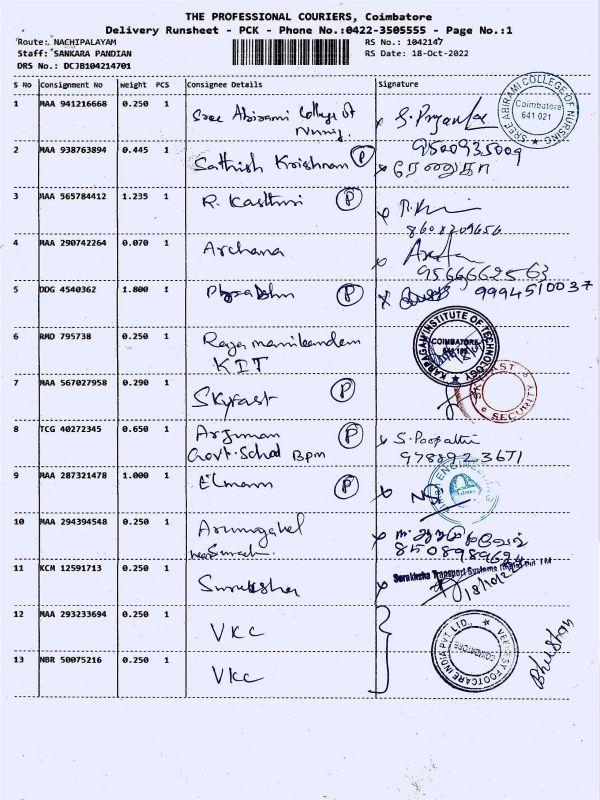 THE PROFESSIONAL COURIERS, Coimbatore
Delivery Runsheet - PCK - Phone No.:0422-3505555 - Page No.:1
Route: NACHIPALAYAM RS No.: 1042147
Staff: SANKARA PANDIAN RS Date: 18-Oct-2022
DRS No.: DCJB104214701
S No Consignment No Weight PCS Consignee Details Signature
1 MAA 941216668 0.250 1 Sree Abirami College of
Nursing
SREE ABIRAMI COLLEGE OF NURSING
Coimbatore
641 021
2 MAA 938763894 0.445 1 Sathish Krishnan P 9500935009
ரேணுகா
3 MAA 565784412 1.235 1 R. Kasthuri P
8608209656
4 MAA 290742264 0.070 1 Archana
9566662563
5 DDG 4540362 1.800 1 P 9994510037
6 RMD 795738 0.250 1 Raja manikandan
KIT
KARPAGAM INSTITUTE OF TECHNOLOGY
COIMBATORE
7 MAA 567027958 0.290 1 Skyfast P
SECURITY
8 TCG 40272345 0.650 1 Arjunan P S. Poopathi
Govt. School BPM 9788923671
9 MAA 287321478 1.000 1 Elmann P
10 MAA 294394548 0.250 1 Arumugavel
8508989624
11 KCM 12591713 0.250 1 Suraksha
Surakksha Transport Systems
18/10/22
12 MAA 293233694 0.250 1 VKC
13 NBR 50075216 0.250 1 VKC
VEEKESY FOOTCARE INDIA PVT LTD.,
COIMBATORE
Bhushan